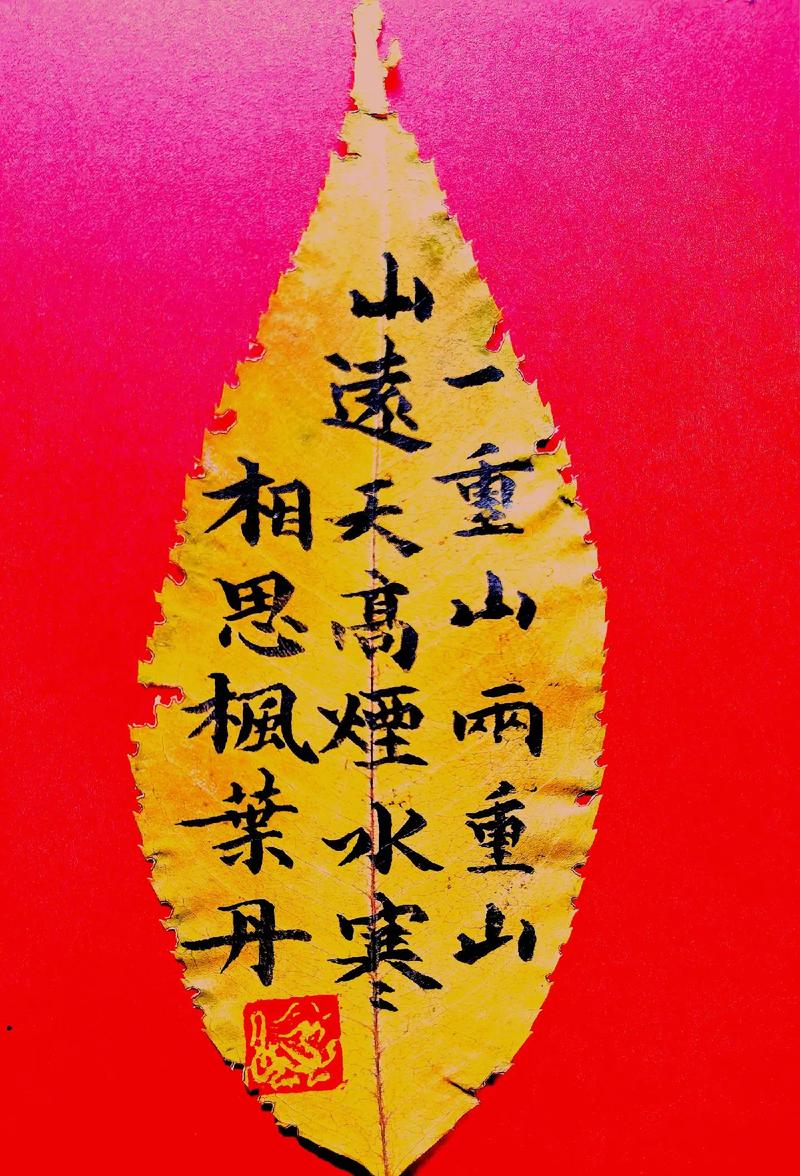 一重山兩重山
山遠天高煙水寒
相思楓葉丹